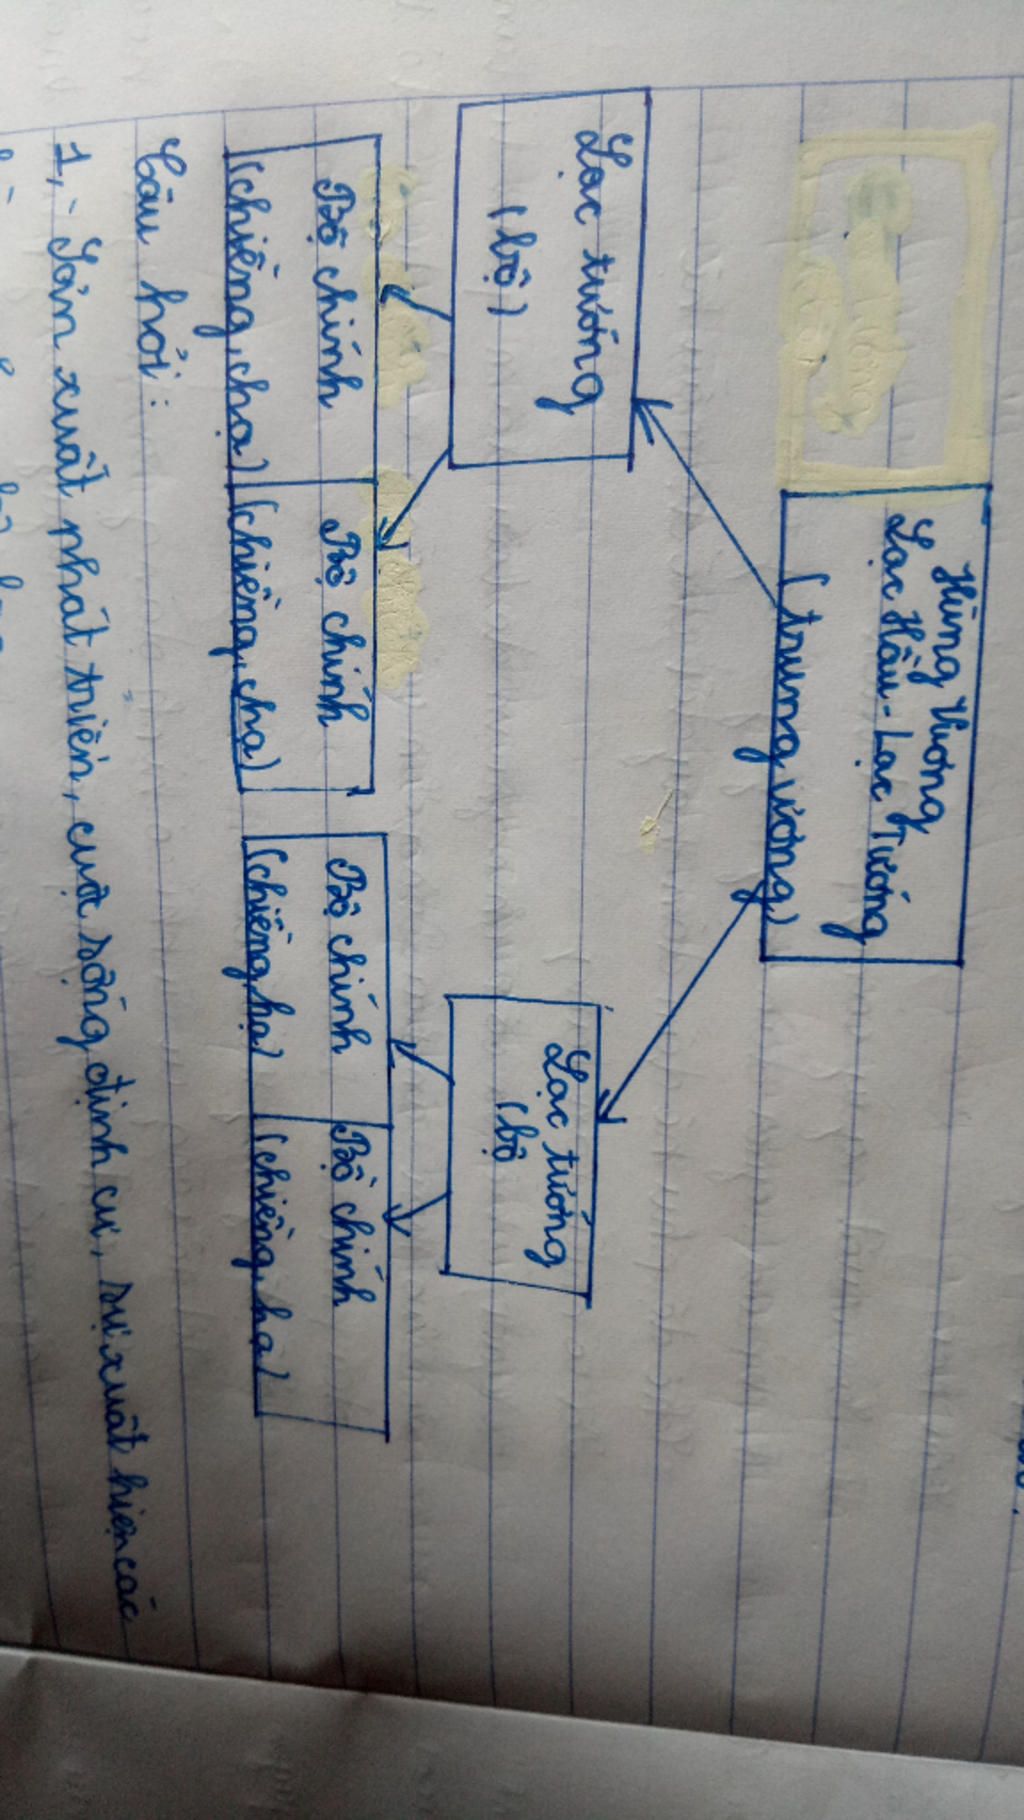 Hùng Vương
Lạc Hầu - Lạc Tướng
(trung ương)
Lạc tướng
(bộ)
Lạc tướng
(bộ
Bộ chính
(chiềng, chạ)
Bộ chính
(chiềng, chạ)
Bộ chính
(chiềng, hạ)
Bộ chính
(chiềng, hạ)
Câu hỏi:
1, - Sản xuất phát triển, cuộc sống định cư, sự xuất hiện các